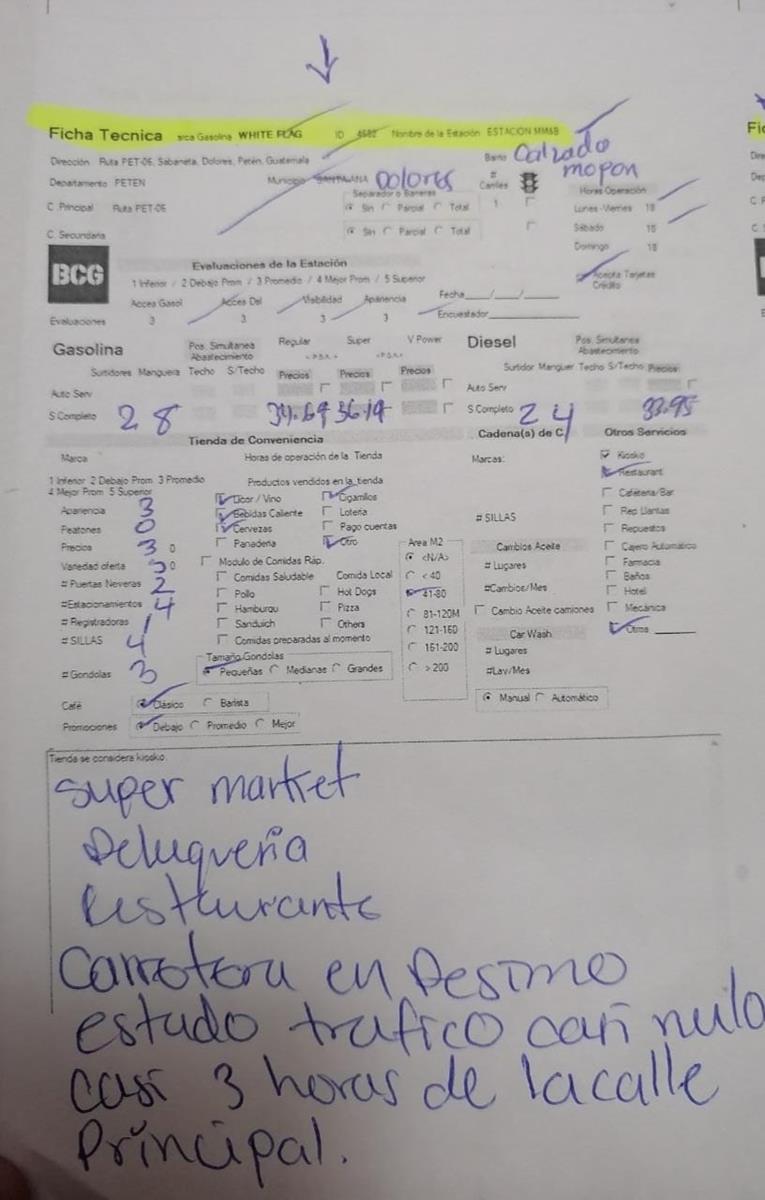 Ficha Tecnica arca Gasolina WHITE FLAG ID 4682 Nombre de la Estación ESTACION MM&B
Dirección Ruta PET-06, Sabaneta, Dolores, Petén, Guatemala Barrio Calzada mopan
Departamento PETEN Municipio SANTA ANA Dolores # Carriles 1
C. Principal Ruta PET-06
Separador o Barreras
Sin Parcial Total
Horas Operación
Lunes-Viernes 18
Sábado 18
Domingo 18
C. Secundaria Sin Parcial Total
BCG
Evaluaciones de la Estación
1 Inferior / 2 Debajo Prom / 3 Promedio / 4 Mejor Prom / 5 Superior
Acepta Tarjetas Crédito
Acces Gasol Acces Del Visibilidad Apariencia Fecha___/___/___
Evaluaciones 3 3 3 3 Encuestador
Gasolina Pos. Simultanea Abastecimiento Regular Super V Power Diesel Pos. Simultanea Abastecimiento
Surtidores Manguera Techo S/Techo Precios Precios Precios Surtidor Manguer Techo S/Techo Precios
Auto Serv Auto Serv
S Completo 2 8 34.69 36.19 S Completo 2 4 33.95
Tienda de Conveniencia Cadena(s) de C. Otros Servicios
Marca Horas de operación de la Tienda Marcas:
1 Inferior 2 Debajo Prom 3 Promedio
4 Mejor Prom 5 Superior
Productos vendidos en la tienda
Apariencia 3
Peatones 0
Precios 3 0
Variedad oferta 3 0
# Puertas Neveras 2
#Estacionamientos 4
# Registradoras 1
# SILLAS 4
# Gondolas 3
Licor / Vino Cigarrillos
Bebidas Caliente Loteria
Cervezas Pago cuentas
Panaderia Otro
Modulo de Comidas Ráp.
Comidas Saludable Comida Local
Pollo Hot Dogs
Hamburgu Pizza
Sandwich Others
Comidas preparadas al momento
Tamaño Gondolas
Pequeñas Medianas Grandes
Area M2
<N/A>
< 40
41-80
81-120M
121-160
161-200
> 200
# SILLAS
Cambios Aceite
# Lugares
#Cambios/Mes
Cambio Aceite camiones
Car Wash
# Lugares
#Lav/Mes
Manual Automático
Kiosko
Restaurant
Cafeteria/Bar
Rep Llantas
Repuestos
Cajero Automatico
Farmacia
Baños
Hotel
Mecánica
Otros
Café Clásico Barista
Promociones Debajo Promedio Mejor
Tienda se considera kiosko
super market
Peluqueria
Restaurante
Carretera en Pesimo
estado trafico casi nulo
casi 3 horas de la calle
Principal.